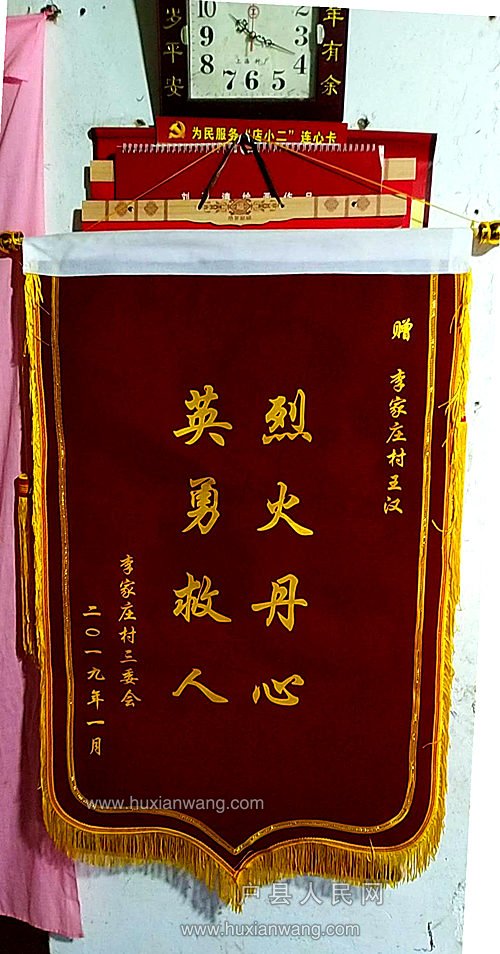 岁平安
年有余
10
9
8
7
6
5
4
3
为民服务“店小二”连心卡
赠 李家庄村王汉
烈火丹心
英勇救人
李家庄村三委会
二〇一九年一月
www.huxianwang.com
户县人民网
www.huxianwang.com